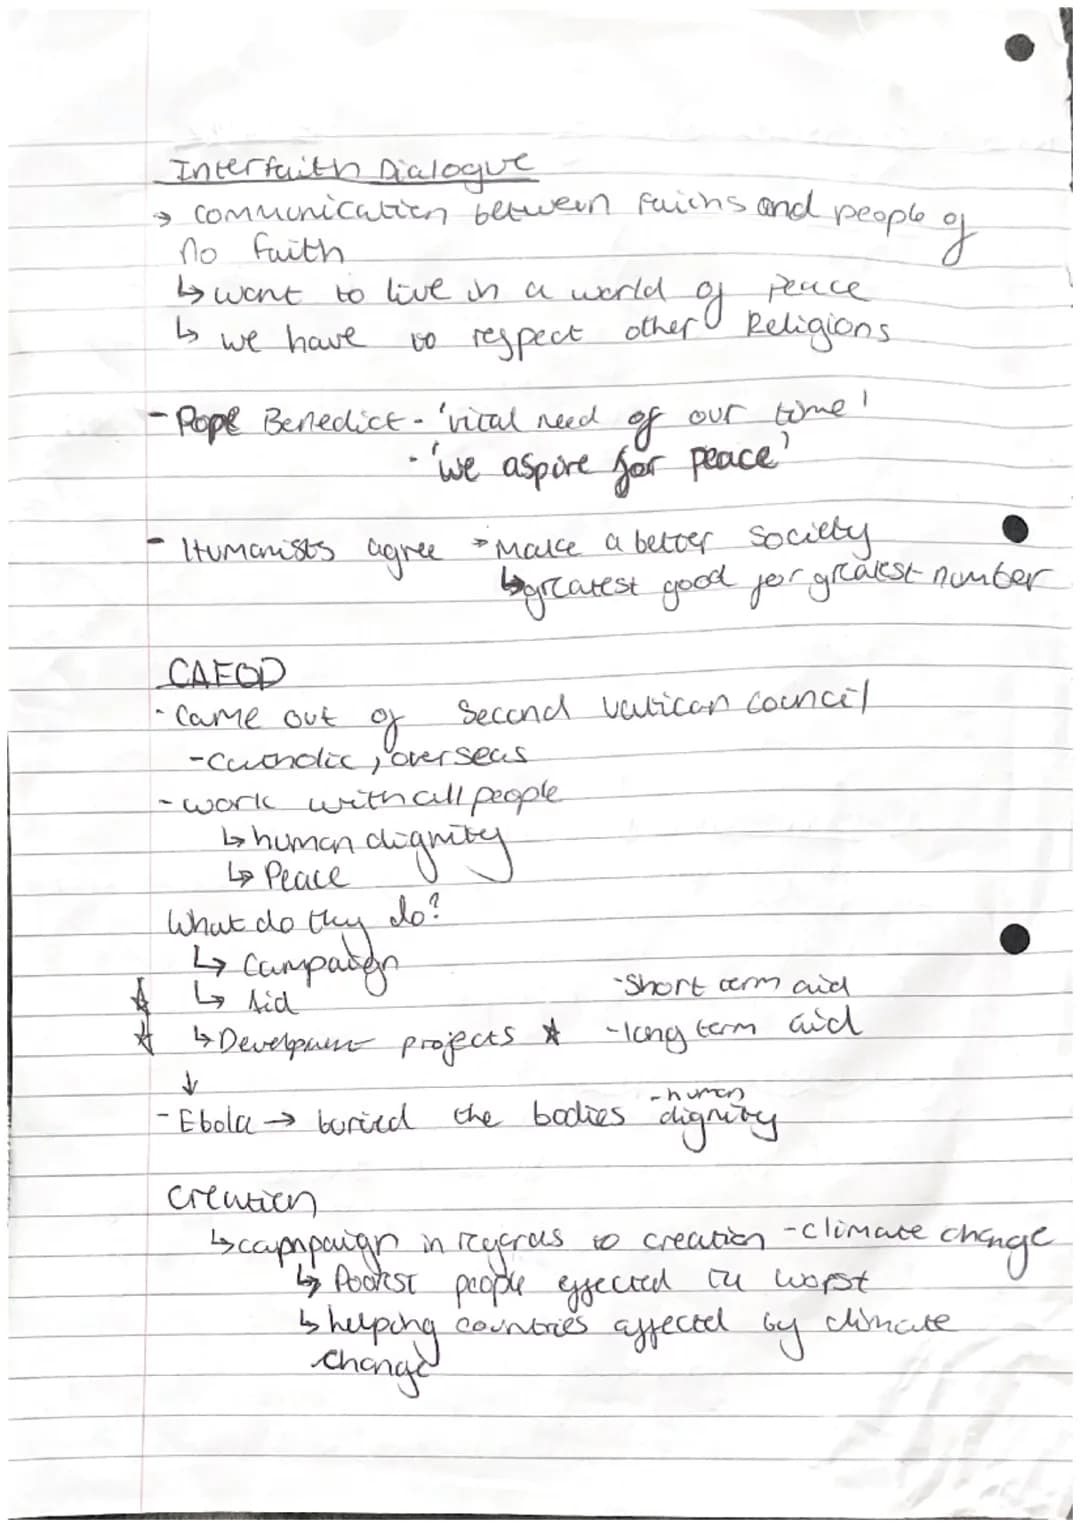 Interfaith Dialogue
→ communication between faiths and people of
no faith
↳ want to live in a world of peace
↳ we have to respect other Religions
- Pope Benedict - 'vital need of our time'
- 'we aspire for peace'
- Humanists agree → Make a better society
↳ greatest good for greatest number
CAFOD
- Came out of Second Vatican Council
- Catholic, overseas
- work with all people
↳ human dignity
↳ Peace
What do they do?
↳ Campaign
☆ ↳ Aid - Short term aid
☆ ↳ Development projects ☆ - long term aid
↓
- Ebola → buried the bodies - human dignity
Creation
↳ campaign in regards to creation - climate change
↳ Poorest people effected the worst
↳ helping countries affected by climate
change